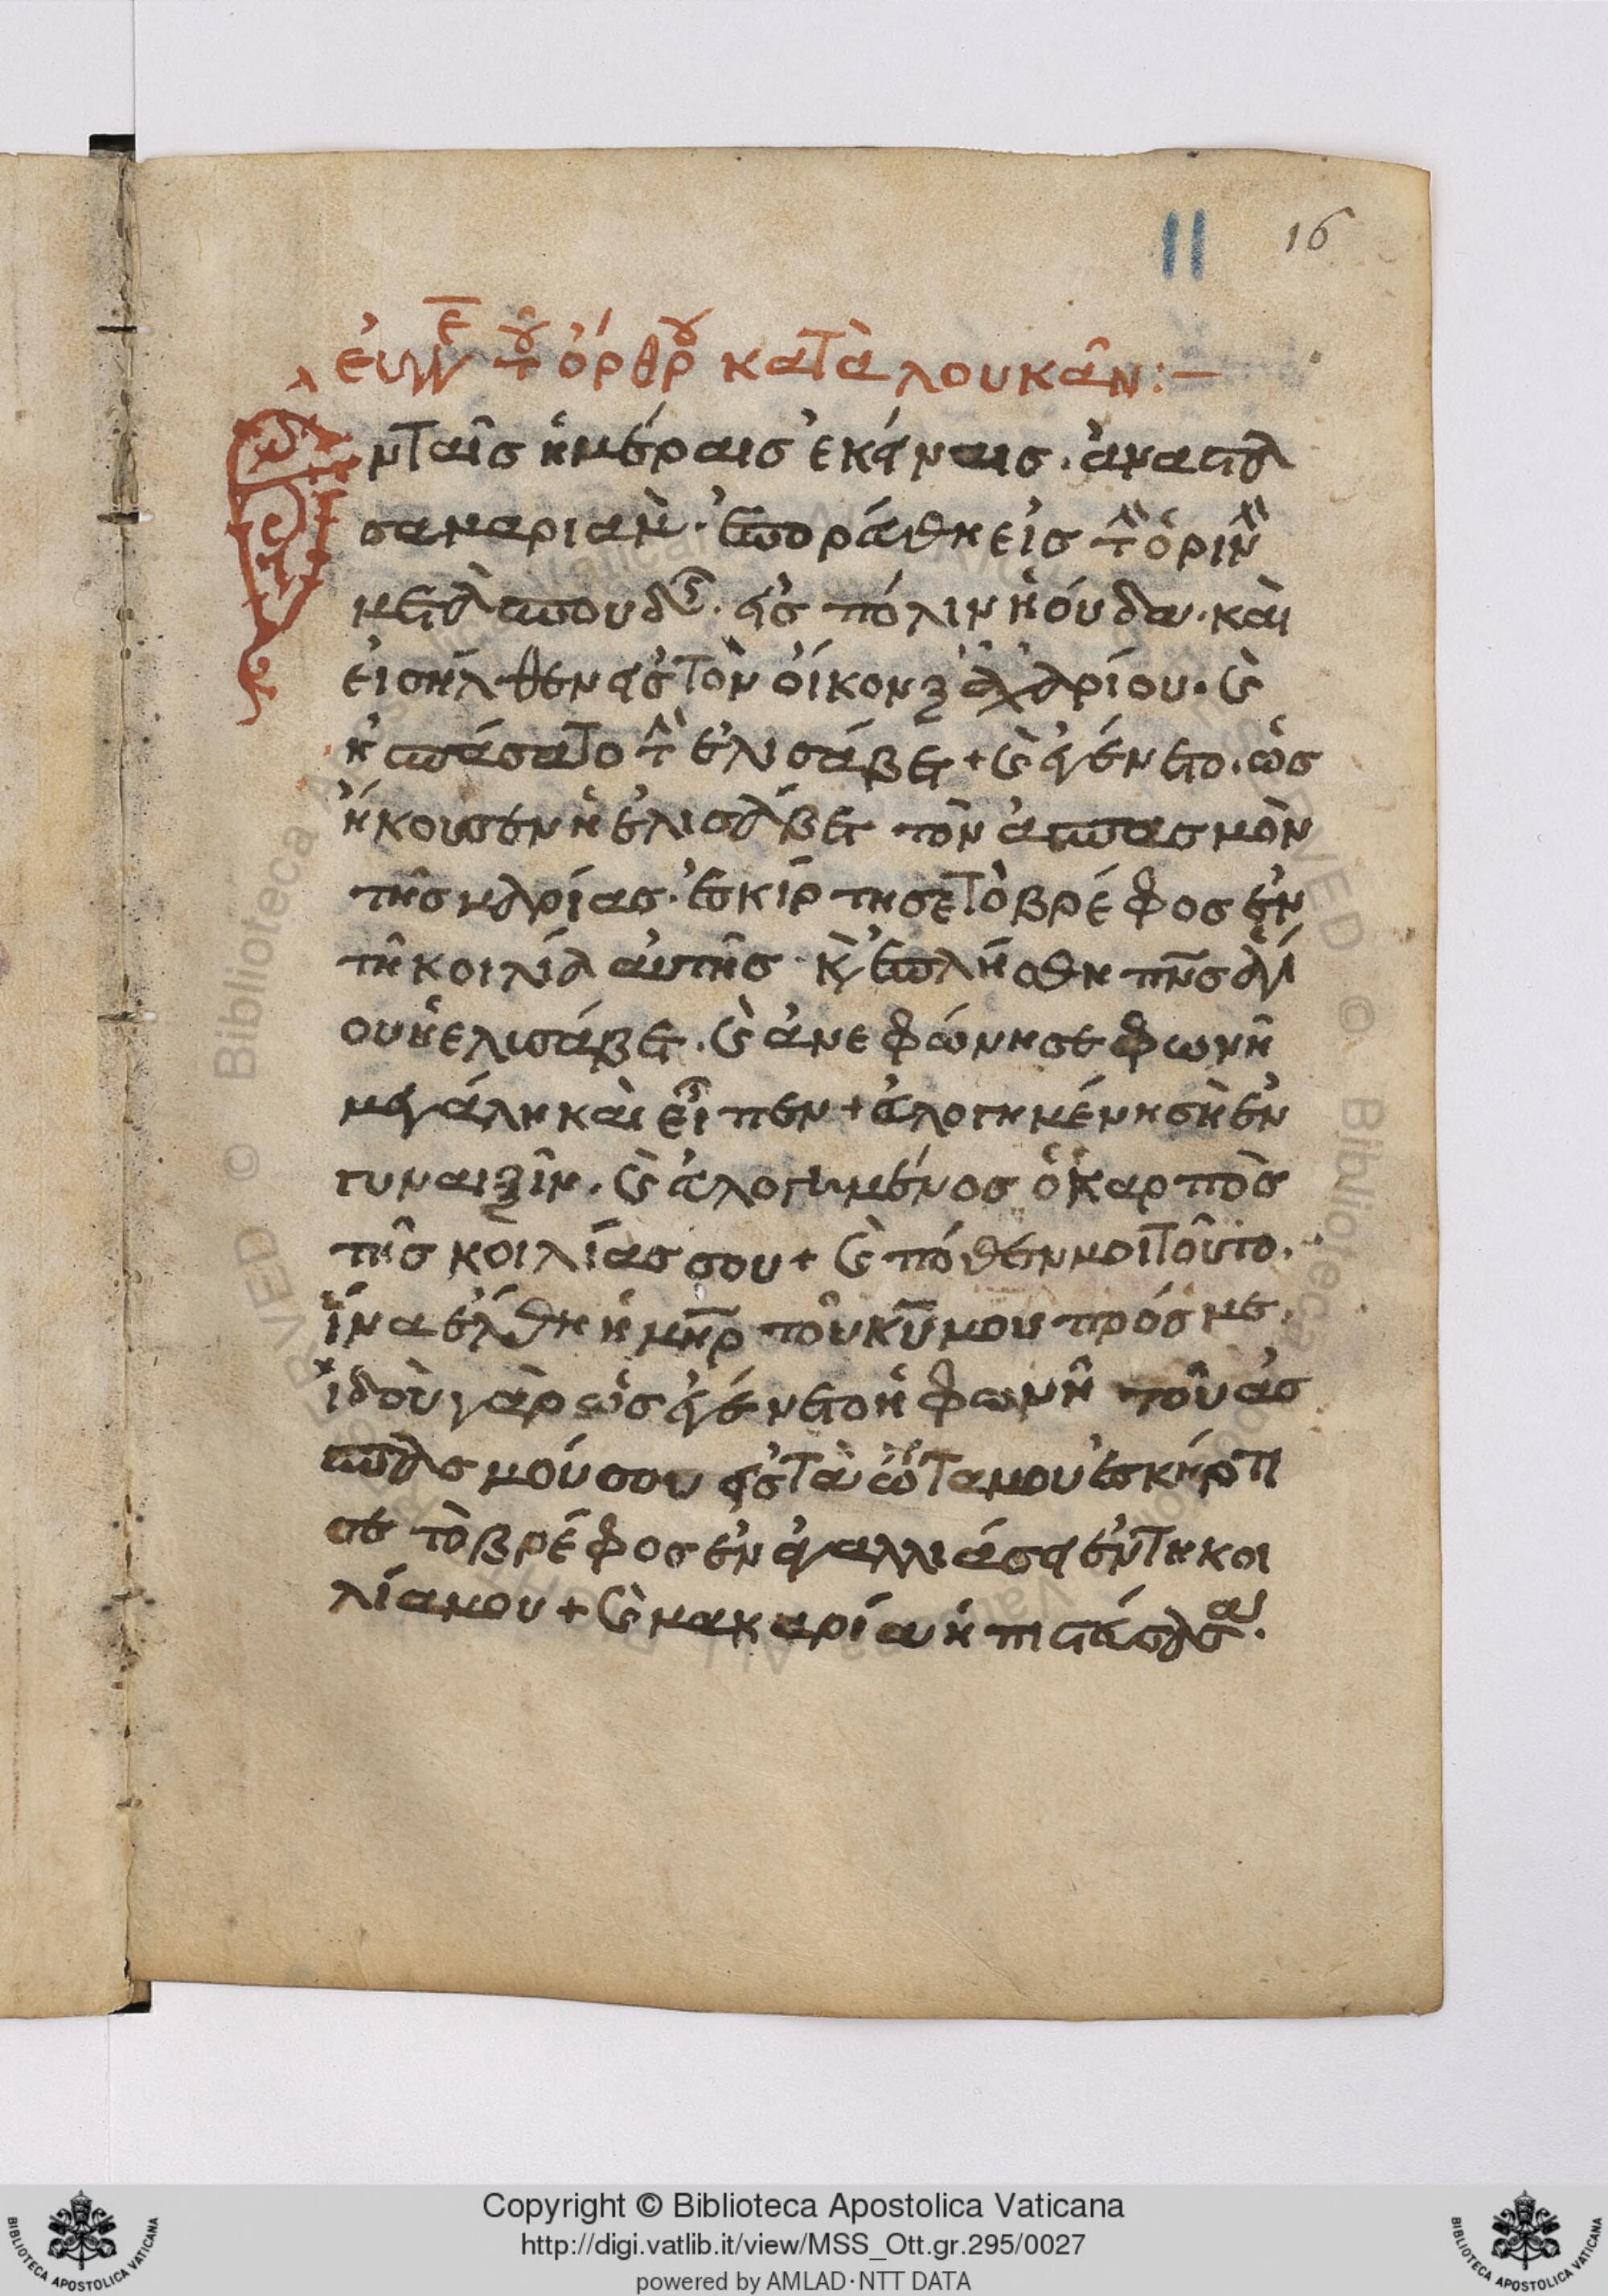 11 16
εὐαγ τοῦ ὄρθρου κατὰ λουκᾶν:—
Ἐν ταῖς ἡμέραις ἐκείναις. ἀναστᾶ
σα μαριὰμ. ἐπορεύθη εἰς τὴν ὀρινὴν
μετὰ σπουδῆς. εἰς πόλιν ἰούδα. καὶ
εἰσῆλθεν εἰς τὸν οἶκον ζαχαρίου. καὶ
ἠσπάσατο τὴν ἐλισάβετ + καὶ ἐγένετο. ὡς
ἤκουσεν ἡ ἐλισάβετ τὸν ἀσπασμὸν
τῆς μαρίας. ἐσκίρτησε τὸ βρέφος ἐν
τῆ κοιλία αὐτῆς κ(αὶ) ἐπλήσθη πν̅ς ἁγί
ου ἡ ελισάβετ. καὶ ἀνεφώνησε φωνῆ
μεγάλη καὶ εἶπεν + εὐλογημένη σὴ ἐν
γυναιξὶν. καὶ εὐλογημένος ὁ καρπὸς
τῆς κοιλίας σου + καὶ πόθεν μοι τοῦτο.
ἵνα ἔλθη ἡ μη̅ρ τοῦ κυ̅ μου πρός με.
ἰδοὺ γὰρ ὡς ἐγένετο ἡ φωνῆ τοῦ ἀσ
πασμού σου εἰς τὰ ὦτα μου ἐσκήρτι
σε τὸ βρέφος ἐν ἀγαλλιάσει ἐν τη κοι
λία μου + καὶ μακαρία ἡ πιστεύσασα.
Copyright © Biblioteca Apostolica Vaticana
http://digi.vatlib.it/view/MSS_Ott.gr.295/0027
powered by AMLAD·NTT DATA
BIBLIOTECA APOSTOLICA VATICANA
BIBLIOTECA APOSTOLICA VATICANA